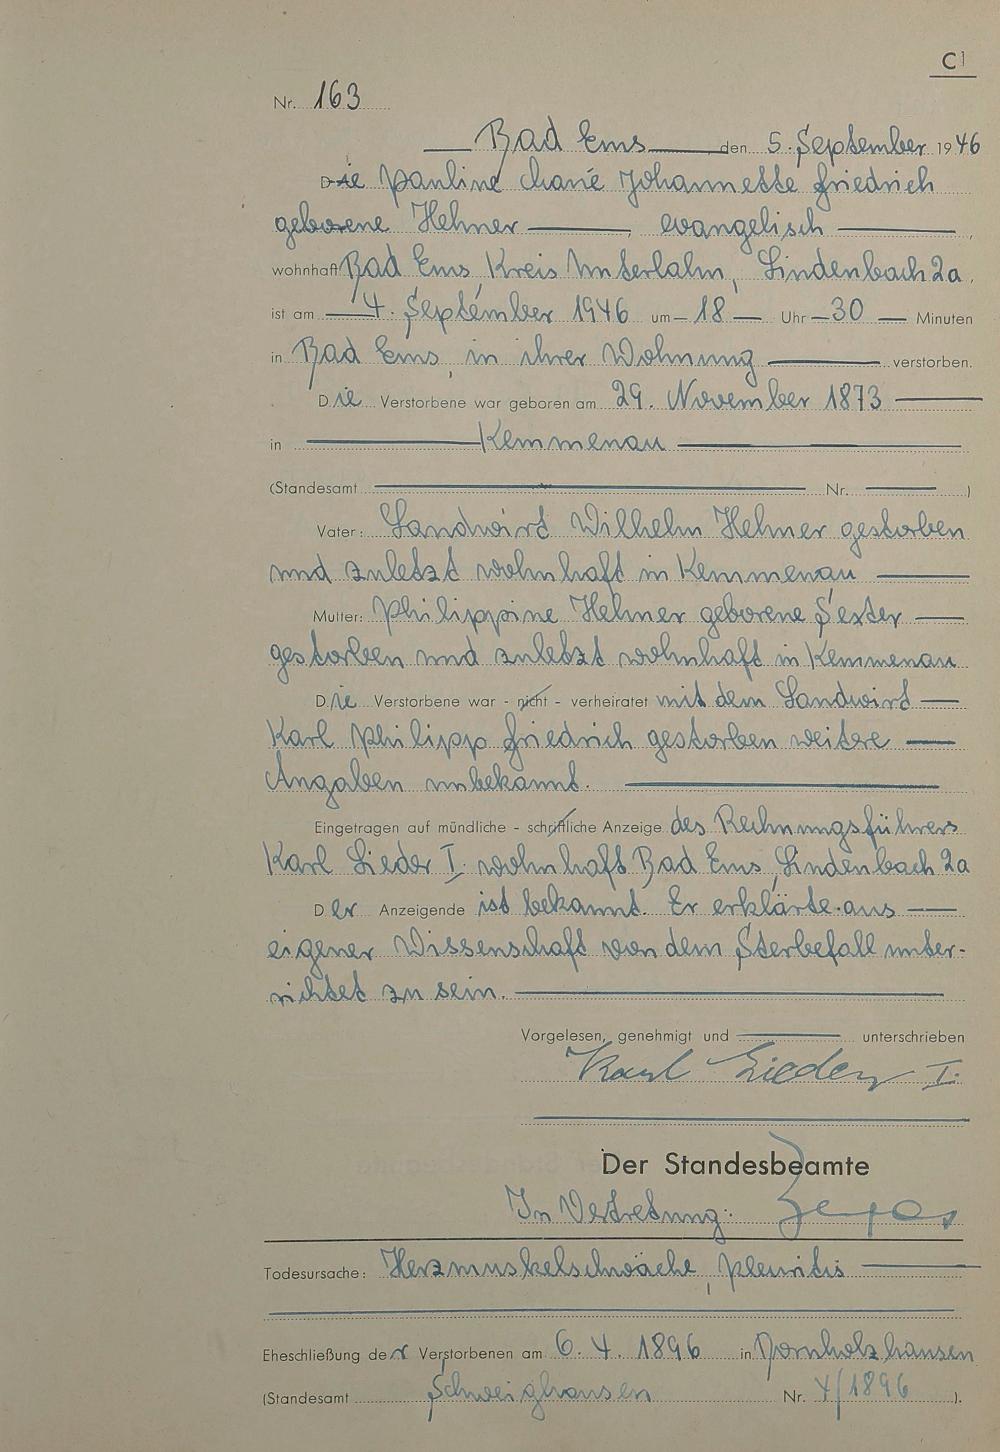 C1
Nr. 163
Bad Ems den 5. September 1946
Die Pauline Johannette Friedrich
geborene Hehner, evangelisch
wohnhaft Bad Ems, Kreis Unterlahn, Lindenbach 2a,
ist am 4. September 1946 um 18 Uhr 30 Minuten
in Bad Ems, in ihrer Wohnung verstorben.
Die Verstorbene war geboren am 29. November 1873
in Kemmenau
(Standesamt Nr. )
Vater: Landwirt Wilhelm Hehner gestorben
und zuletzt wohnhaft in Kemmenau
Mutter: Philippine Hehner geborene
gestorben und zuletzt wohnhaft in Kemmenau
Die Verstorbene war - nicht - verheiratet mit dem Landwirt
Karl Philipp Friedrich gestorben weitere
Angaben unbekannt.
Eingetragen auf mündliche - schriftliche Anzeige des Rechnungsführers
Karl Lieder I. wohnhaft Bad Ems, Lindenbach 2a
Der Anzeigende ist bekannt. Er erklärte aus
eigener Wissenschaft von dem Sterbefall unter-
richtet zu sein.
Vorgelesen, genehmigt und unterschrieben
Karl Lieder I.
Der Standesbeamte
In Vertretung:
Todesursache: Herzmuskelschwäche, Pleuritis
Eheschließung der Verstorbenen am 6. 4. 1896 in Dornholzhausen
(Standesamt Schweighausen Nr. 4/1896 ).